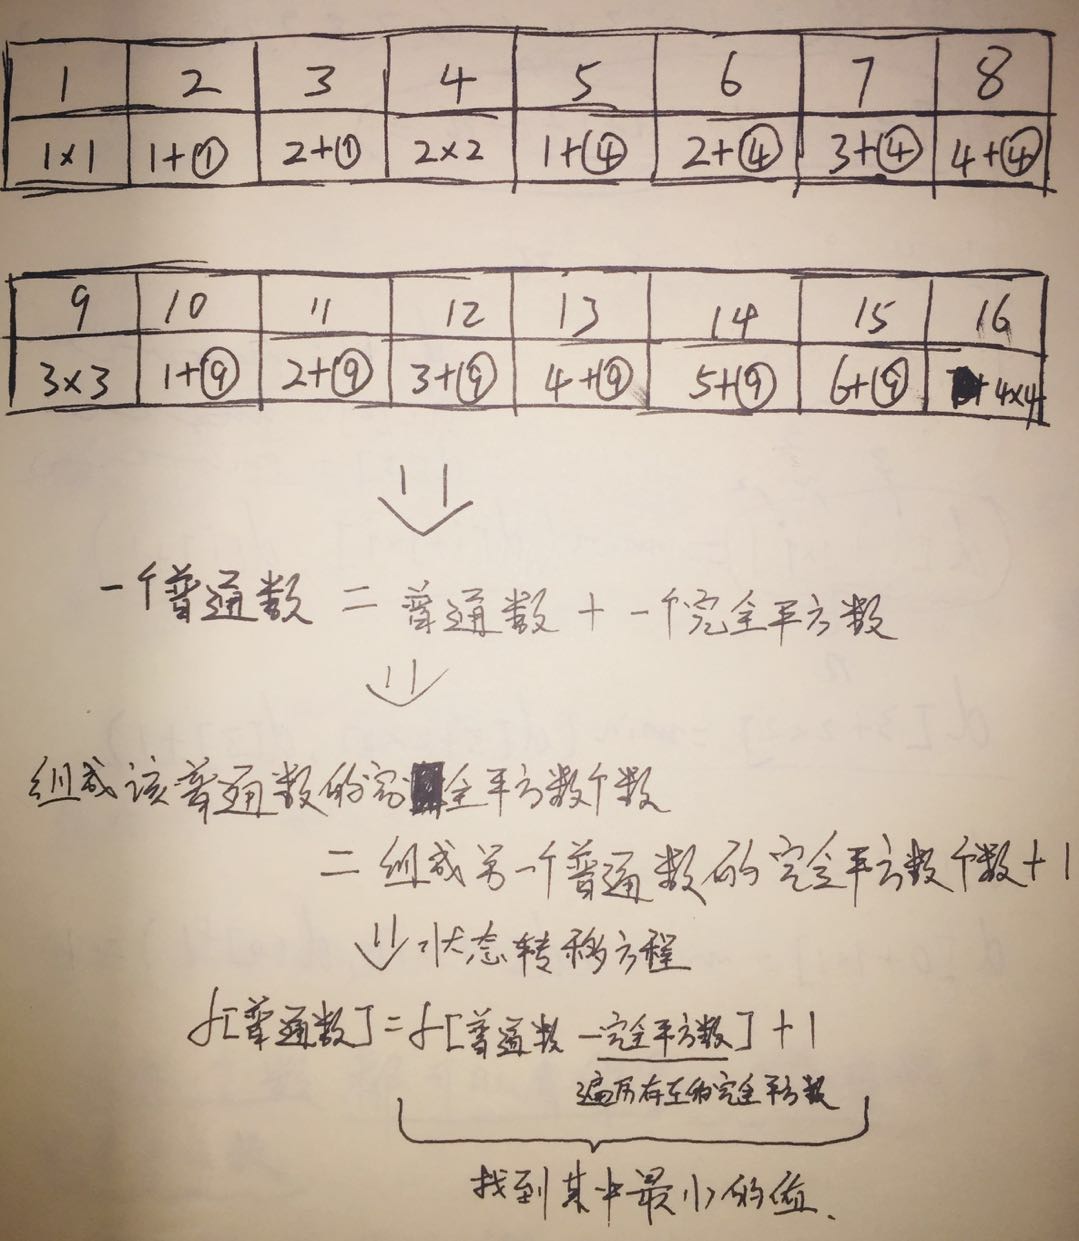 1 2 3 4 5 6 7 8
1×1 1+① 2+① 2×2 1+④ 2+④ 3+④ 4+④
9 10 11 12 13 14 15 16
3×3 1+⑨ 2+⑨ 3+⑨ 4+⑨ 5+⑨ 6+⑨ + 4×4
一个普通数 = 普通数 + 一个完全平方数
组成该普通数的完全平方数个数
= 组成另一个普通数的完全平方数个数+1
状态转移方程
f[普通数]=f[普通数-完全平方数]+1
遍历存在的完全平方数
找到其中最小的值.